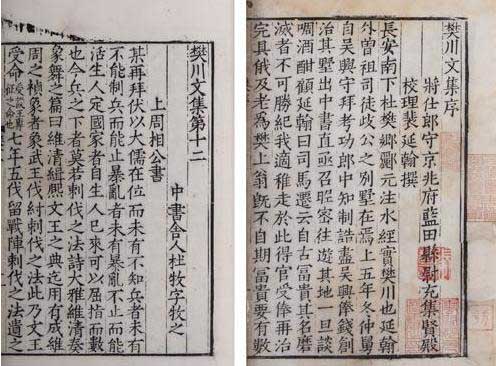 樊川文集序
將仕郎守京兆府藍田縣尉充集賢殿
校理裴延翰撰
長安南下杜樊鄉酈元注水經實樊川也延翰
外曾祖司徒歧公之別墅在焉上五年冬仲舅
自吳興守拜考功郎中知制誥盡吳興俸錢創
治其墅出中書直亟召昵密往遊其地一旦談
啁酒酣顧延翰曰司馬遷云自古富貴其名磨
滅者不可勝紀我適稚走於此得官受俸再治
完具俄及老為樊上翁既不自期富貴要有數
樊川文集第十二
中書舍人杜牧字牧之
上周相公書
某再拜伏以大儒在位而未有不知兵者未有
不能制兵而能止暴亂者未有暴亂不止而能
活生人定國家者自生人已來可以屈指而數
也今兵之下者莫若刺伐之法詩大雅維清奏
象舞之篇曰維清緝熙文王之典迄用有成維
周之禎象者象武王伐紂刺伐之法此乃文王
受命征之命也七年五伐留戰陣刺伐之法遺之